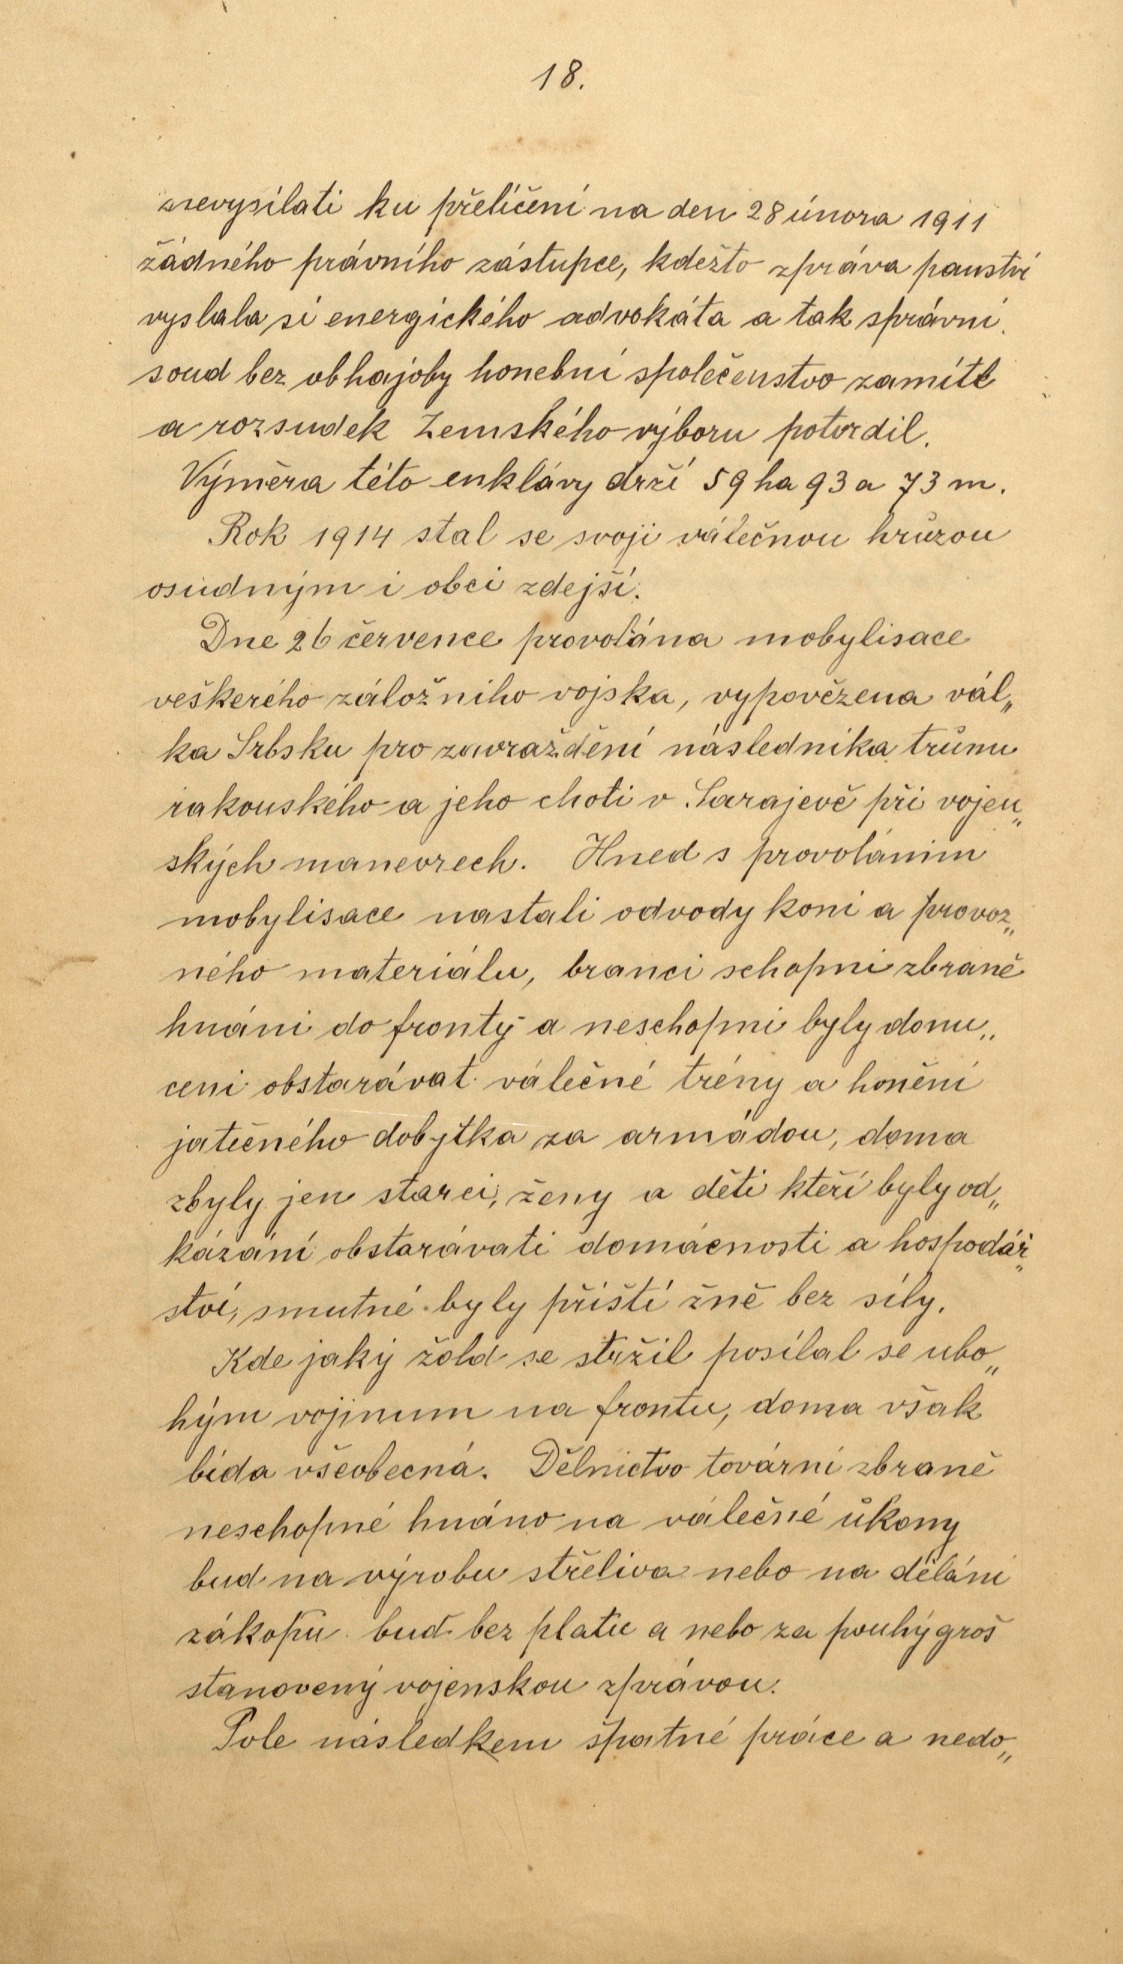 18.
nevysílati ku přelíčení na den 28 února 1911
žádného právního zástupce, kdežto zpráva panství
vyslala si energického advokáta a tak správní
soud bez obhajoby honební společenstvo zamítl
a rozsudek Zemského výboru potvrdil.
Výměra této enklávy drží 59 ha 93 a 73 m.
Rok 1914 stal se svoji válečnou hrůzou
osudným i obci zdejší.
Dne 26 července provolána mobylisace
veškerého záložního vojska, vypovězena vál„
ka Srbsku pro zavraždění následníka trůnu
rakouského a jeho choti v Sarajevě při vojen„
ských manevrech. Hned s provoláním
mobylisace nastali odvody koni a provoz„
ného materiálu, branci schopni zbraně
hnáni do fronty a neschopni byly donu„
ceni obstarávat válečné trény a honění
jatečného dobytka za armádou, doma
zbyly jen starci, ženy a děti kteří byly od„
kázání obstarávati domácnosti a hospodář„
ství, smutné byly příští žně bez síly.
Kde jaký žold se stržil posílal se ubo„
hým vojinum na frontu, doma však
bída všeobecná. Dělnictvo tovární zbraně
neschopné hnáno na válečné úkony
bud na výrobu střeliva nebo na dělání
zákopu buď bez platu a nebo za pouhý groš
stanovený vojenskou zprávou.
Pole následkem špatné práce a nedo„